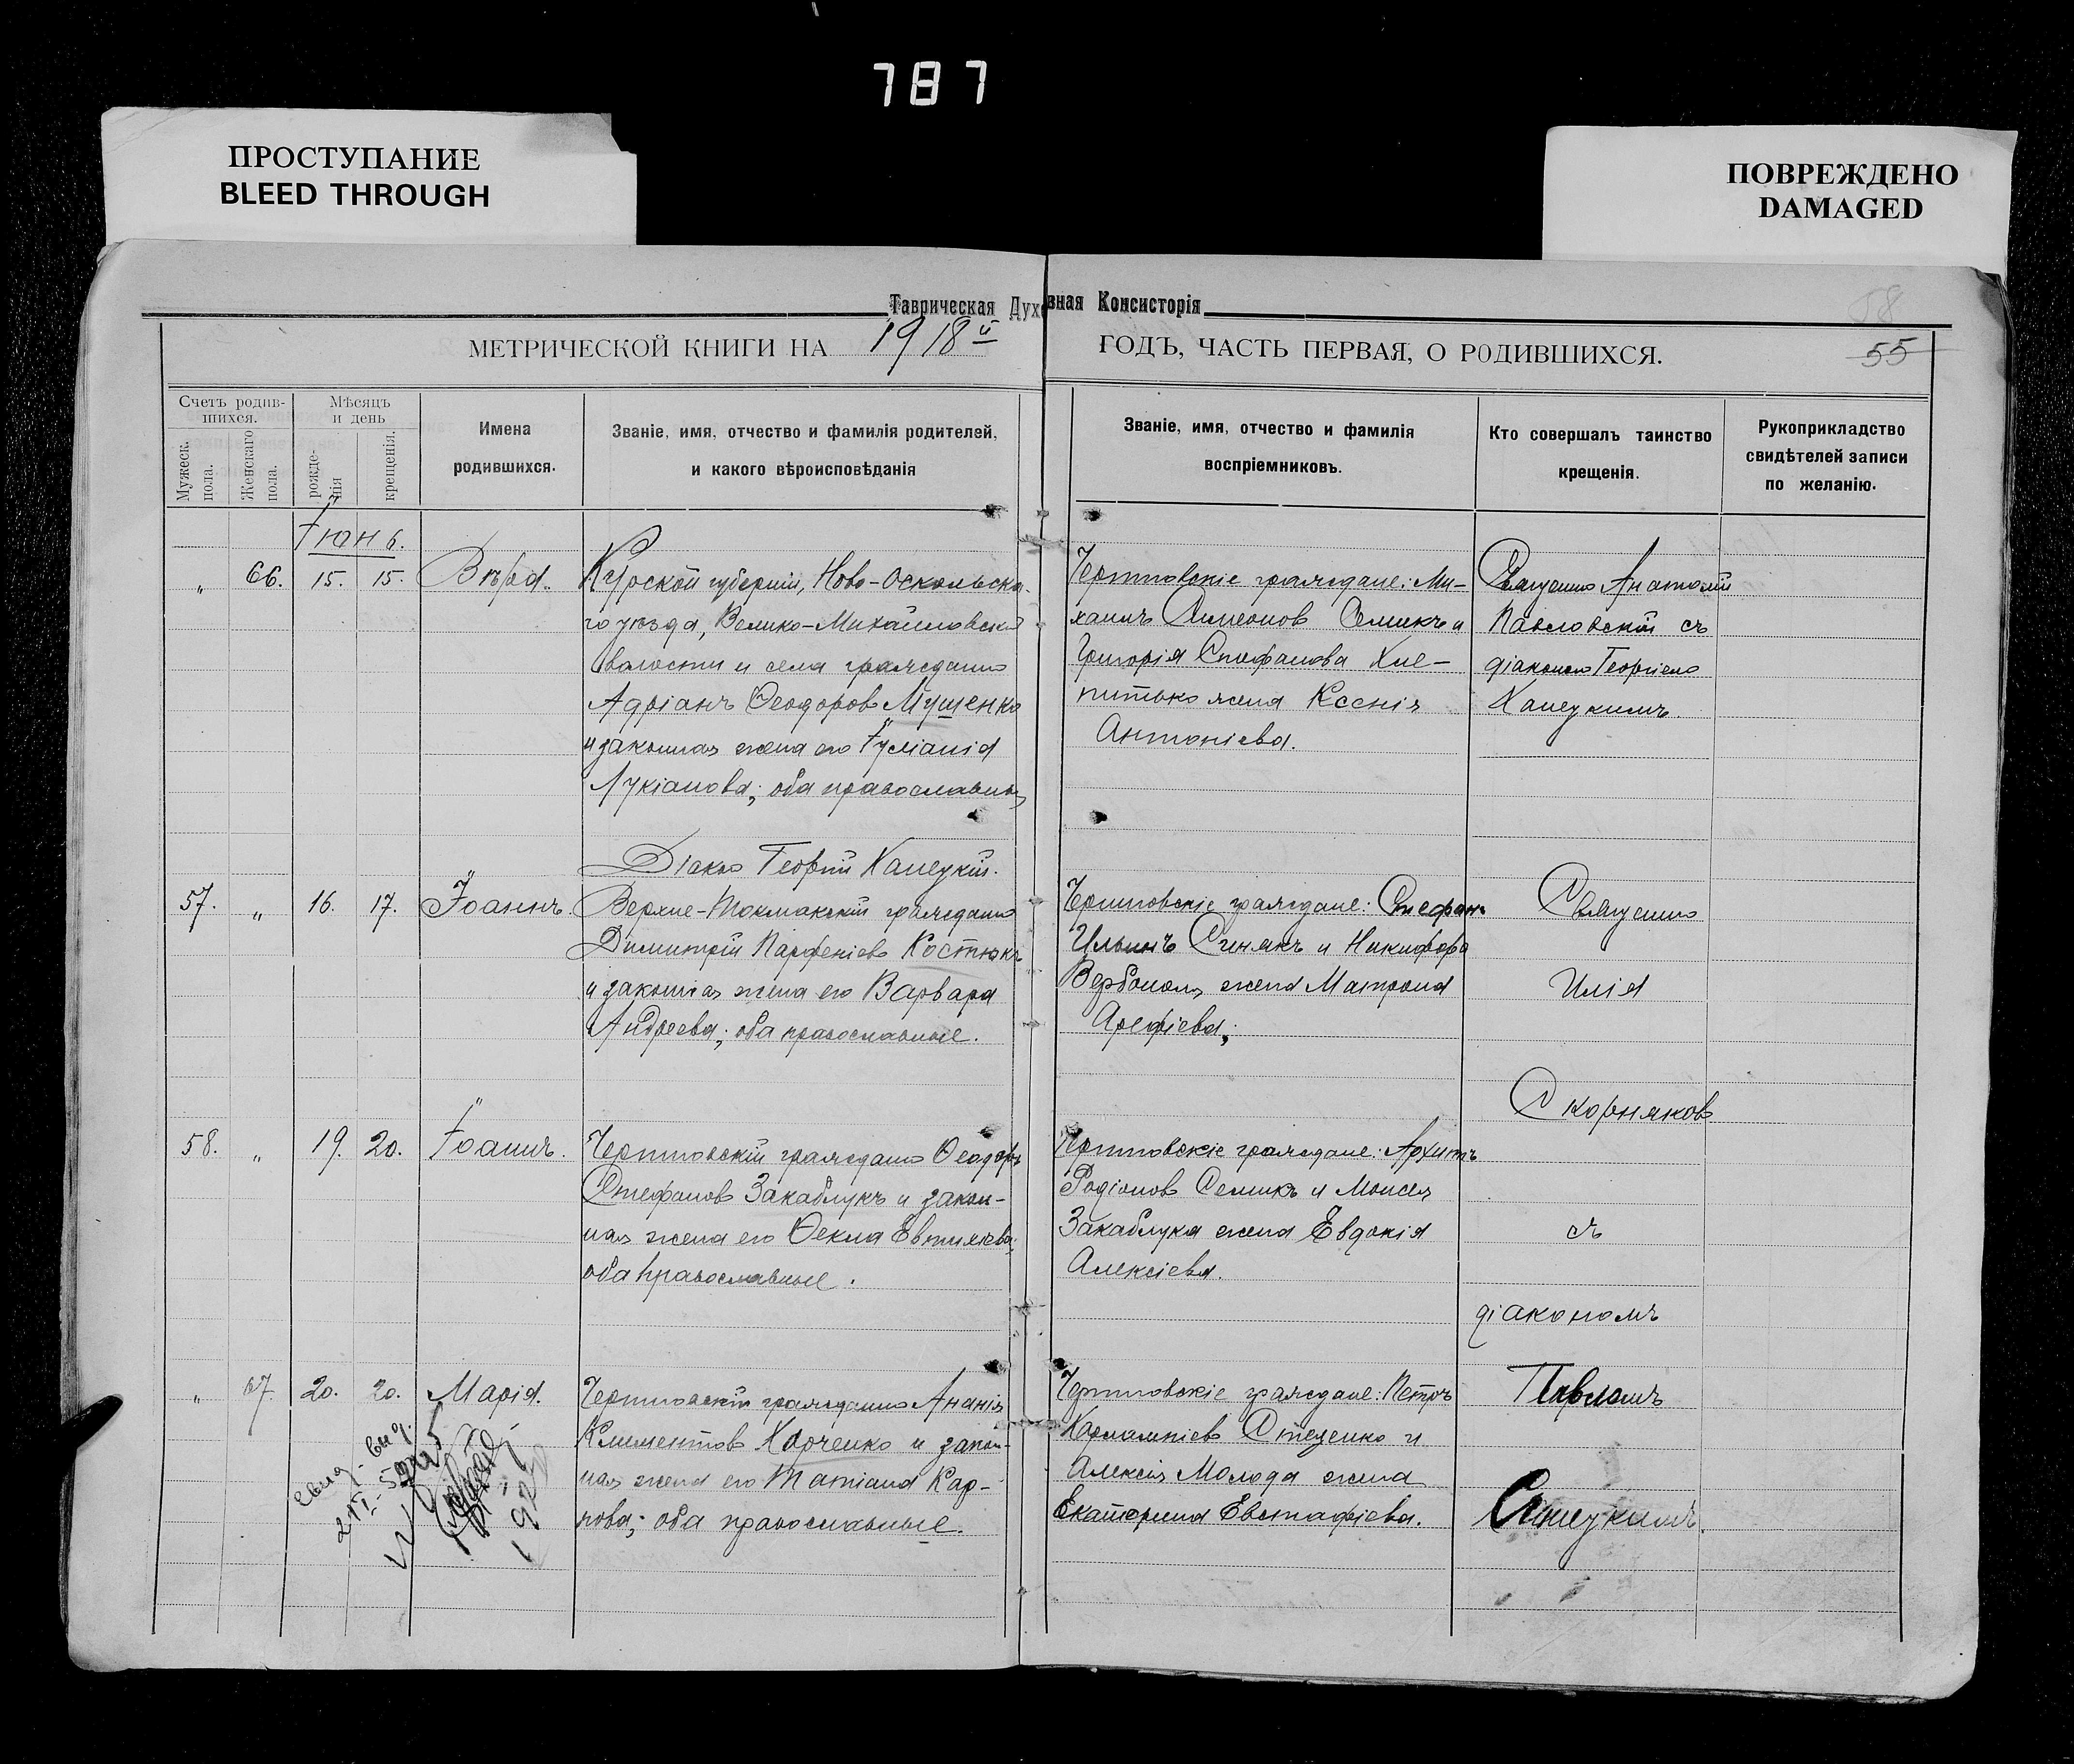 787
ПРОСТУПАНИЕ
BLEED THROUGH
ПОВРЕЖДЕНО
DAMAGED
Таврическая Духовная Консисторія
58
МЕТРИЧЕСКОЙ КНИГИ НА 1918й ГОДЪ, ЧАСТЬ ПЕРВАЯ, О РОДИВШИХСЯ.
55
Счетъ родив-
шихся.
Мужеск.
пола.
Женскаго
пола.
Мѣсяцъ
и день
рожде-
нія
крещенія.
Имена
родившихся.
Званіе, имя, отчество и фамилія родителей,
и какого вѣроисповѣданія
Званіе, имя, отчество и фамилія
воспріемниковъ.
Кто совершалъ таинство
крещенія.
Рукоприкладство
свидѣтелей записи
по желанію.
Іюнь.
„ 66. 15. 15. Вѣра.
Курской губерніи, Ново-Оскольска-
го уѣзда, Велико-Михайловской
волости и села гражданинъ
Адріанъ Ѳеодоровъ Мущенко
и законная жена его Іуліанія
Лукіанова; оба православные
Діаконъ Георгій Ханецкій.
граждане: Ми-
хаилъ Симеоновъ Семикъ и
Григорія Стефанова Хле-
питько жена Ксенія
Антоніева.
Священникъ Анатолій
Павловскій съ
діакономъ Георгіемъ
Ханецкимъ.
57. „ 16. 17. Іоаннъ.
Верхне-Токмакскій гражданинъ
Димитрій Парфеніевъ Костюкъ
и законная жена его Варвара
Андреева; оба православные.
граждане: Стефанъ
Ильинъ Синякъ и Никифора
жена Матрона
Арефіева;
Священникъ
Илія
Скорняковъ
съ
діакономъ
Павломъ
58. „ 19. 20. Іоаннъ.
гражданинъ Ѳеодоръ
Стефановъ Закаблукъ и закон-
ная жена его Ѳекла Евтихіева;
оба православные.
граждане: Архипъ
Родіоновъ Семикъ и Моисея
Закаблука жена Евдокія
Алексіева.
„ 67. 20. 20. Марія.
гражданинъ Ананія
Климентовъ Харченко и закон-
ная жена его Татіана Кар-
пова; оба православные.
граждане: Петръ
Харлампіевъ Стеценко и
Алексія Молода жена
Екатерина Евстафіева.